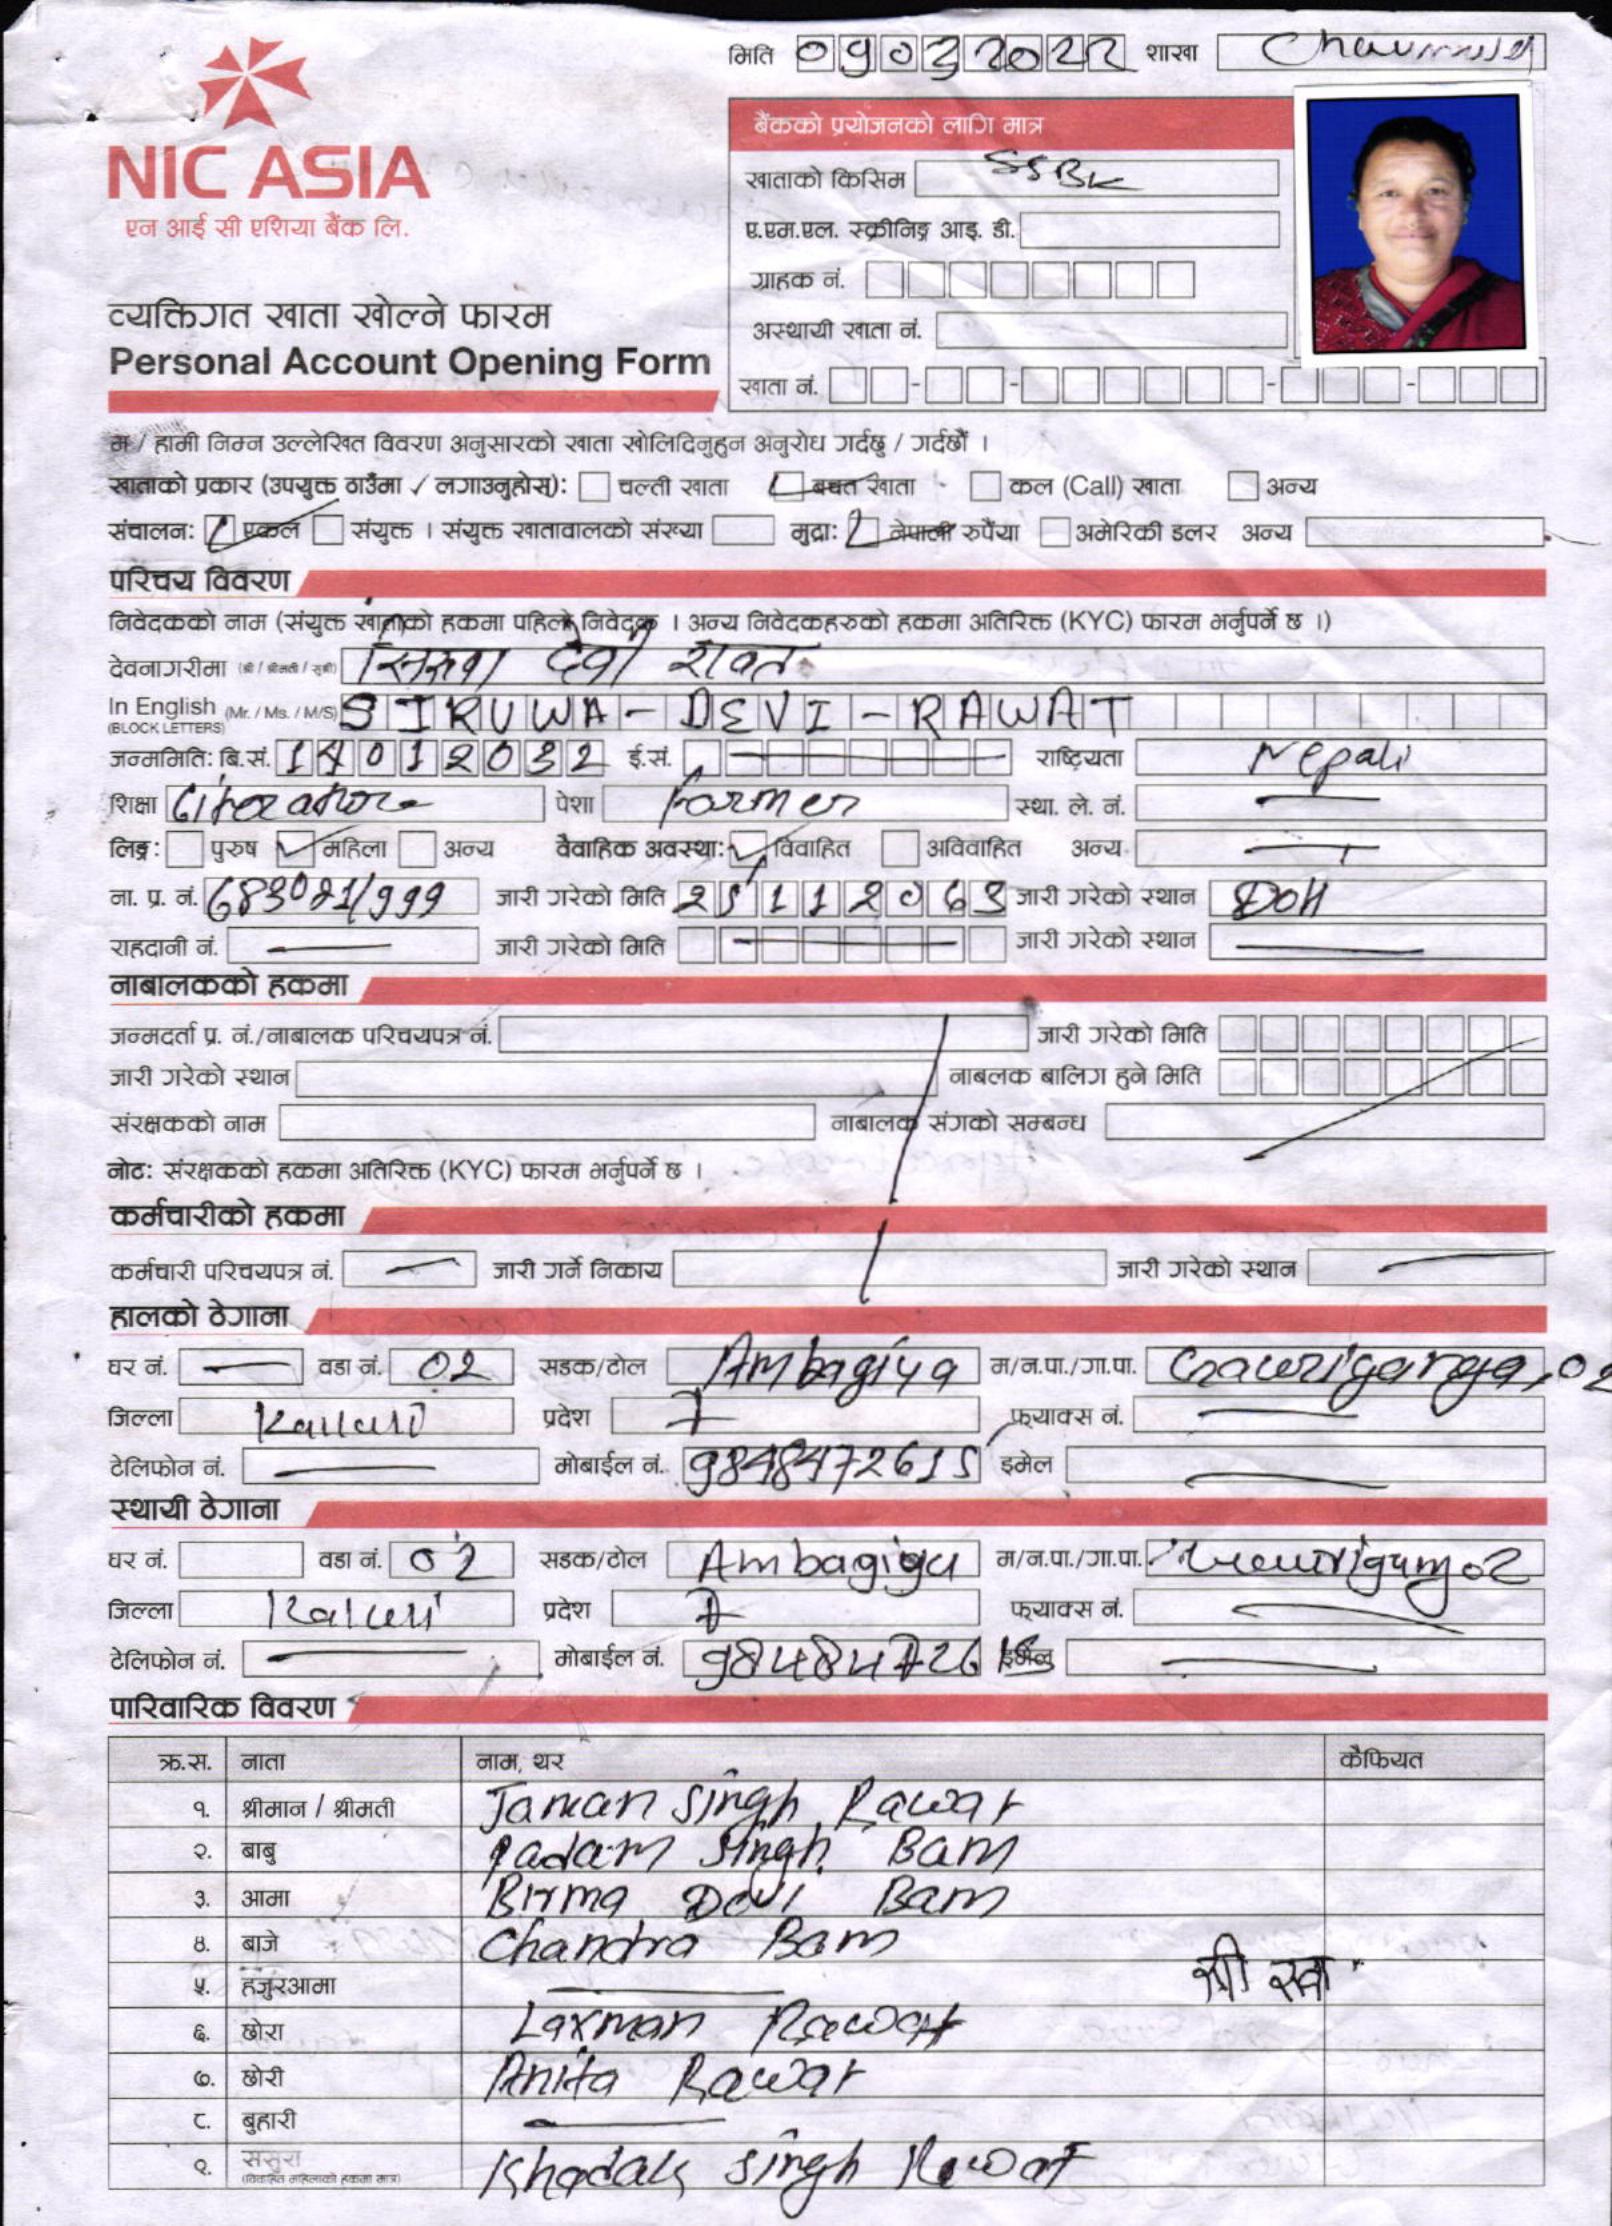 मिति 09032022 शाखा
NIC ASIA
एन आई सी एशिया बैंक लि.
बैंकको प्रयोजनको लागि मात्र
खाताको किसिम SSBK
ए.एम.एल. स्क्रीनिङ्ग आइ. डी.
ग्राहक नं.
अस्थायी खाता नं.
खाता नं.
व्यक्तिगत खाता खोल्ने फारम
Personal Account Opening Form
म / हामी निम्न उल्लेखित विवरण अनुसारको खाता खोलिदिनुहुन अनुरोध गर्दछु / गर्दछौं ।
खाताको प्रकार (उपयुक्त ठाउँमा ✓ लगाउनुहोस्): चल्ती खाता बचत खाता कल (Call) खाता अन्य
संचालन: एकल संयुक्त । संयुक्त खातावालको संख्या मुद्रा: नेपाली रुपैंया अमेरिकी डलर अन्य
परिचय विवरण
निवेदकको नाम (संयुक्त खाताको हकमा पहिलो निवेदक । अन्य निवेदकहरुको हकमा अतिरिक्त (KYC) फारम भर्नुपर्ने छ ।)
देवनागरीमा (श्री / श्रीमती / सुश्री) सिरुवा देवी रावत
In English (Mr. / Ms. / M/S) SIRUWA - DEVI - RAWAT
(BLOCK LETTERS)
जन्ममिति: बि.सं. 14012032 ई.सं. राष्ट्रियता Nepali
शिक्षा पेशा Farmer स्था. ले. नं.
लिङ्ग: पुरुष महिला अन्य वैवाहिक अवस्था: विवाहित अविवाहित अन्य
ना. प्र. नं. 683021/999 जारी गरेको मिति 25112063 जारी गरेको स्थान DOTI
राहदानी नं. जारी गरेको मिति जारी गरेको स्थान
नाबालकको हकमा
जन्मदर्ता प्र. नं./नाबालक परिचयपत्र नं. जारी गरेको मिति
जारी गरेको स्थान नाबलक बालिग हुने मिति
संरक्षकको नाम नाबालक संगको सम्बन्ध
नोट: संरक्षकको हकमा अतिरिक्त (KYC) फारम भर्नुपर्ने छ ।
कर्मचारीको हकमा
कर्मचारी परिचयपत्र नं. जारी गर्ने निकाय जारी गरेको स्थान
हालको ठेगाना
घर नं. वडा नं. 02 सडक/टोल Ambagiya म/न.पा./गा.पा. Gauriganga, 02
जिल्ला Kailali प्रदेश 7 फ्याक्स नं.
टेलिफोन नं. मोबाईल नं. 9848472615 इमेल
स्थायी ठेगाना
घर नं. वडा नं. 02 सडक/टोल Ambagiya म/न.पा./गा.पा.
जिल्ला प्रदेश 7 फ्याक्स नं.
टेलिफोन नं. मोबाईल नं. 9848472615 इमेल
पारिवारिक विवरण
क्र.स. नाता नाम, थर कैफियत
१. श्रीमान / श्रीमती Jaman Singh Rawat
२. बाबु Padam Singh Bam
३. आमा Birma Devi Bam
४. बाजे Chandra Bam
५. हजुरआमा
६. छोरा Laxman Rawat
७. छोरी Anita Rawat
८. बुहारी
९. ससुरा Singh Rawat
(विवाहित महिलाको हकमा मात्र)